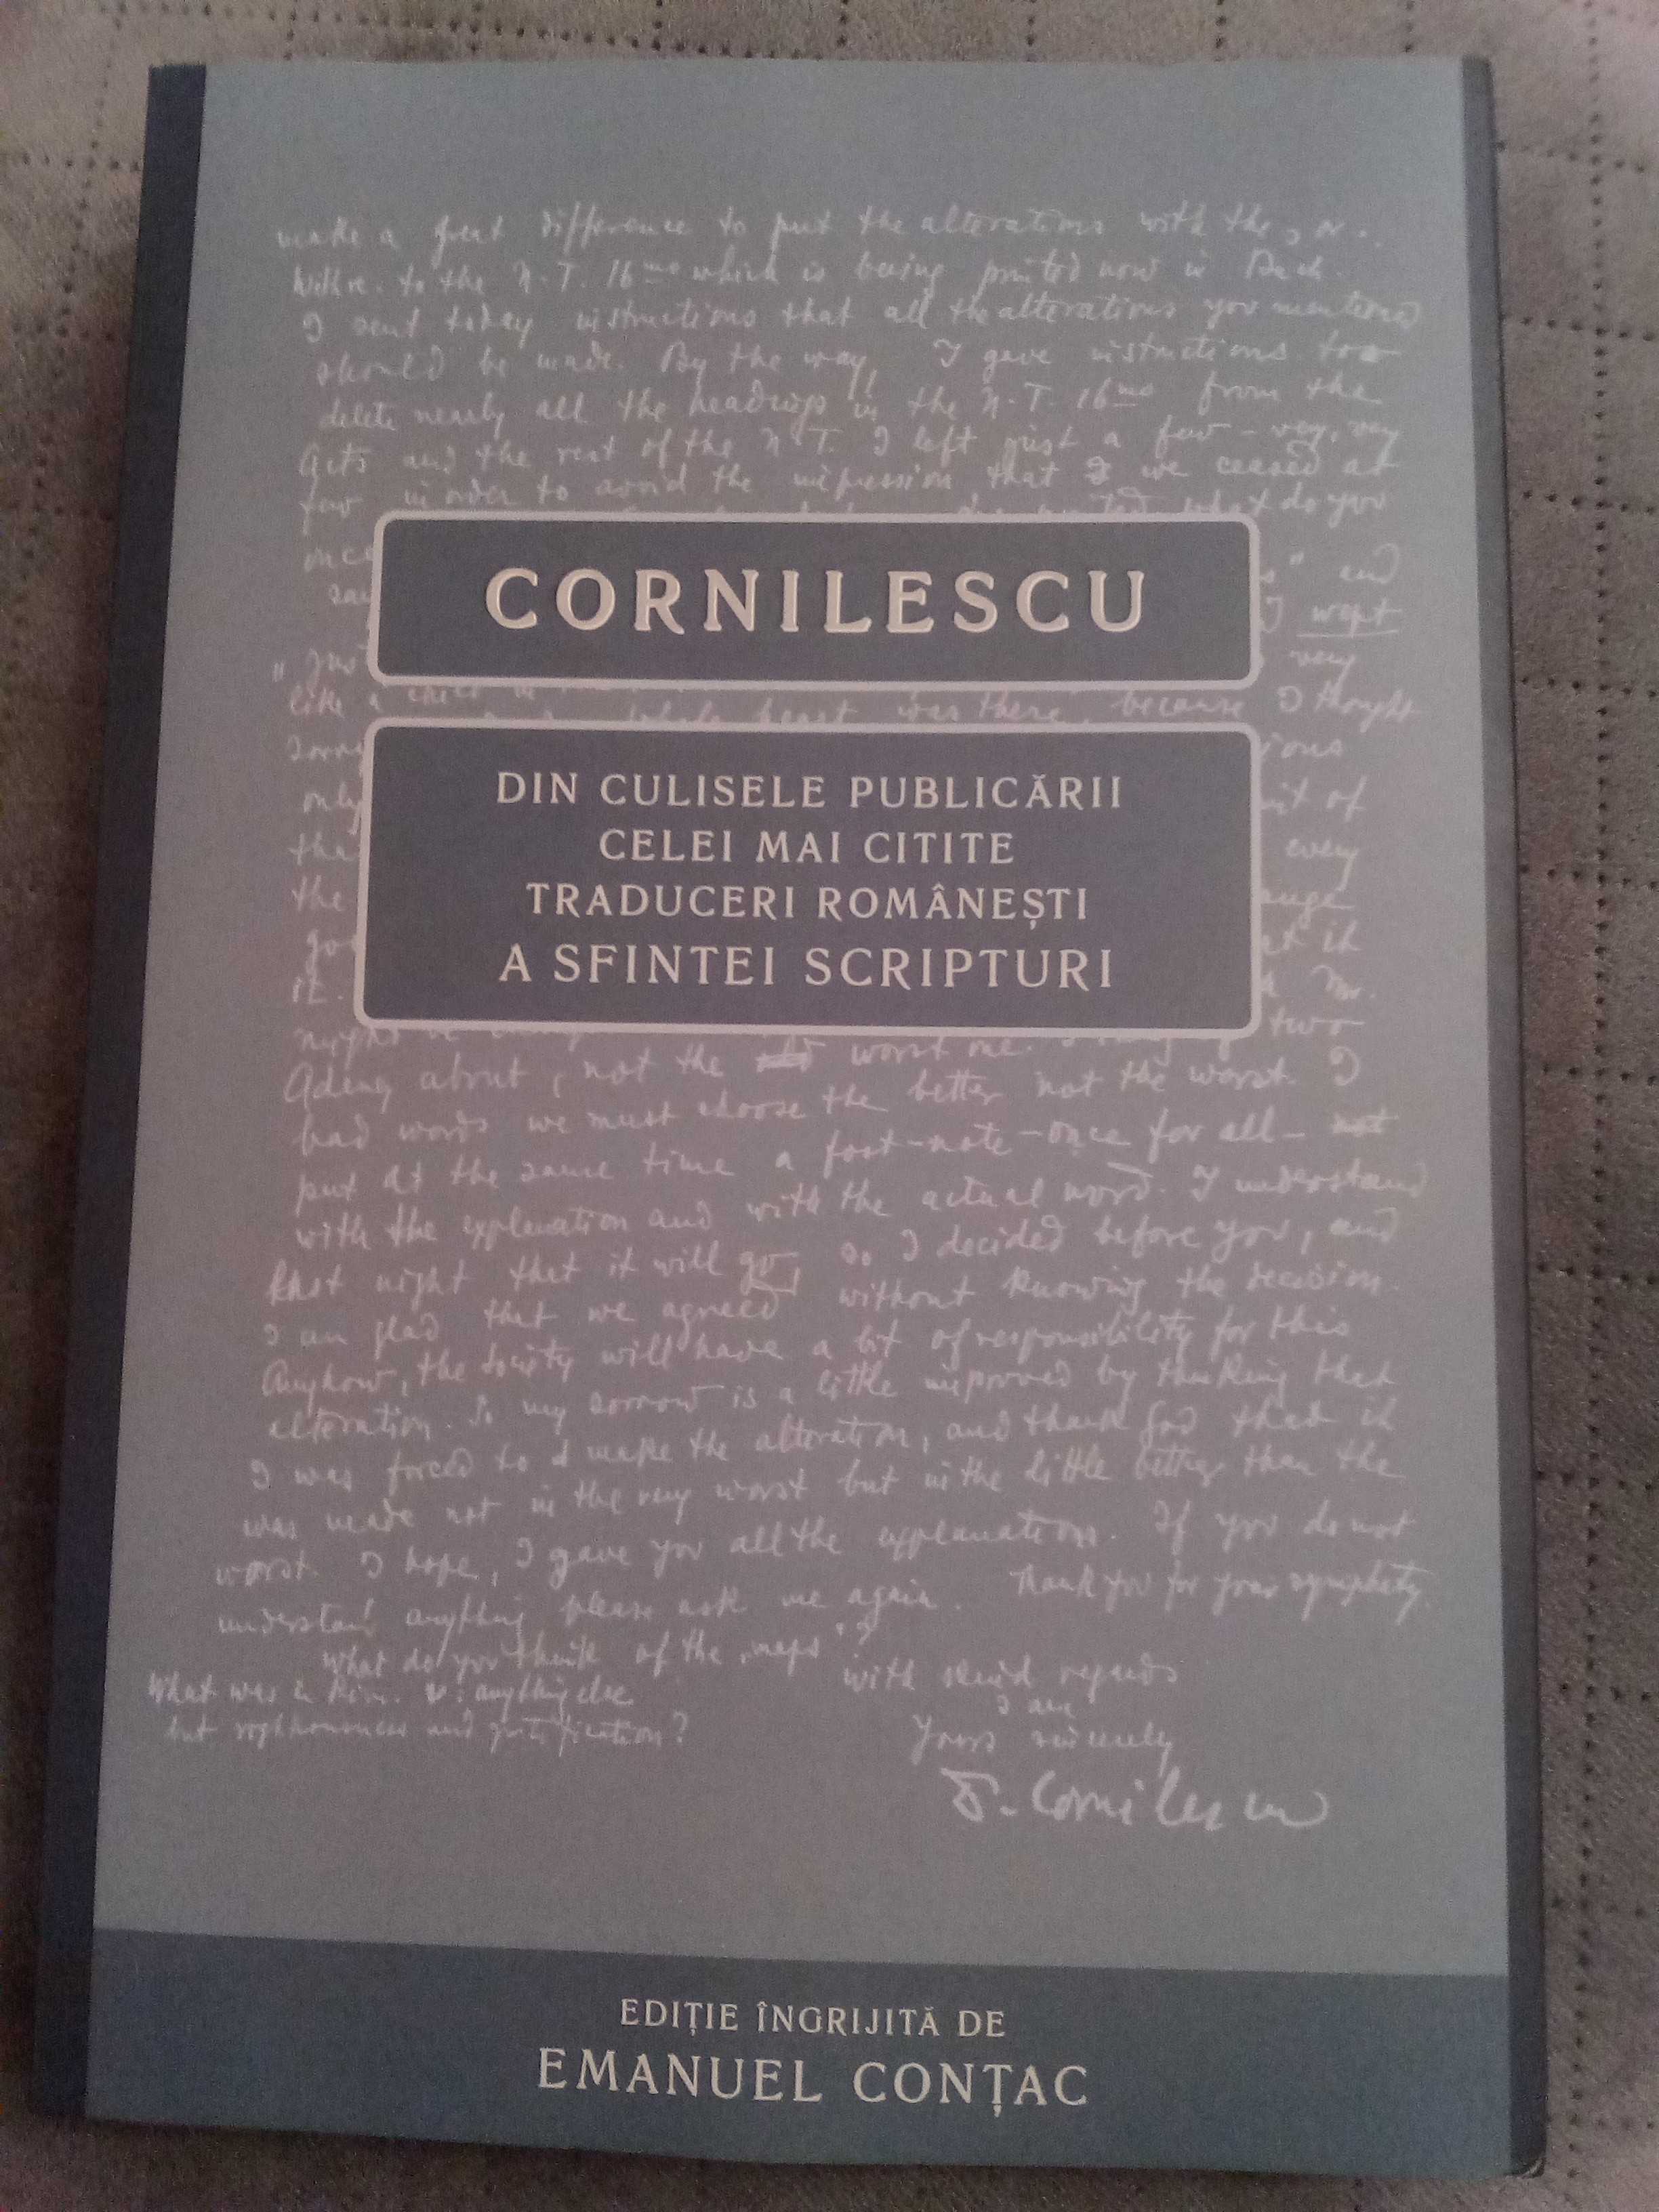 make a great difference to put the alterations with the, or.
to the N.T. 16mo which is being printed now in
I sent today instructions that all the alterations you mentioned
should be made. By the way, I gave instructions too
delete nearly all the headings in the N.T. 16mo from the
Acts and the rest of the N.T. I left just a few - very, very
few in order to avoid the impression that we ceased at
what do you
once
" and
I wept
CORNILESCU
"Just
very
like a child
whole heart was there, because I thought
sorry
only
it of
the
every
the
DIN CULISELE PUBLICĂRII
CELEI MAI CITITE
TRADUCERI ROMÂNEȘTI
A SFINTEI SCRIPTURI
it.
Mr.
two
Adeney about, not the worst one.
bad words we must choose the better not the worst. I
put at the same time a foot-note - once for all - not
with the explanation and with the actual word. I understand
last night that it will go, so I decided before you, and
I am glad that we agreed without knowing the decision.
Anyhow, the Society will have a bit of responsibility for this
alteration. So my sorrow is a little improved by thinking that
I was forced to make the alteration, and thank God that it
was made not in the very worst but in the little better than the
worst. I hope, I gave you all the explanations. If you do not
understand anything please ask me again. Thank you for your sympathy.
What do you think of the "maps"?
with kind regards
What was in him. v: anything else
I am
but righteousness and justification?
Yours sincerely
D. Cornilescu
EDIȚIE ÎNGRIJITĂ DE
EMANUEL CONȚAC